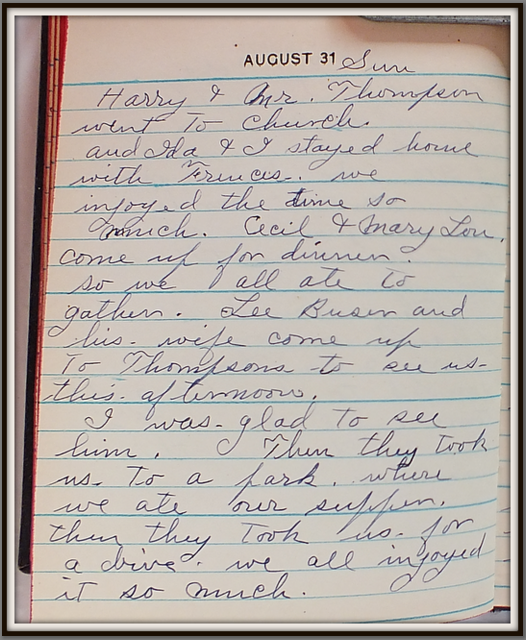 AUGUST 31 Sun
Harry & Mr. Thompson
went To church.
and Ida & I stayed home
with Frences. we
injoyed the time so
much. Cecil & Mary Lou.
come up for dinner.
so we all ate to
gather. Lee Buser and
his. wife come up
To Thompsons to see us-
this. afternoon.
I was- glad to see
him. Then they took
us- to a park. where
we ate our supper.
then they Took us- for
a drive. we all injoyed
it so much.